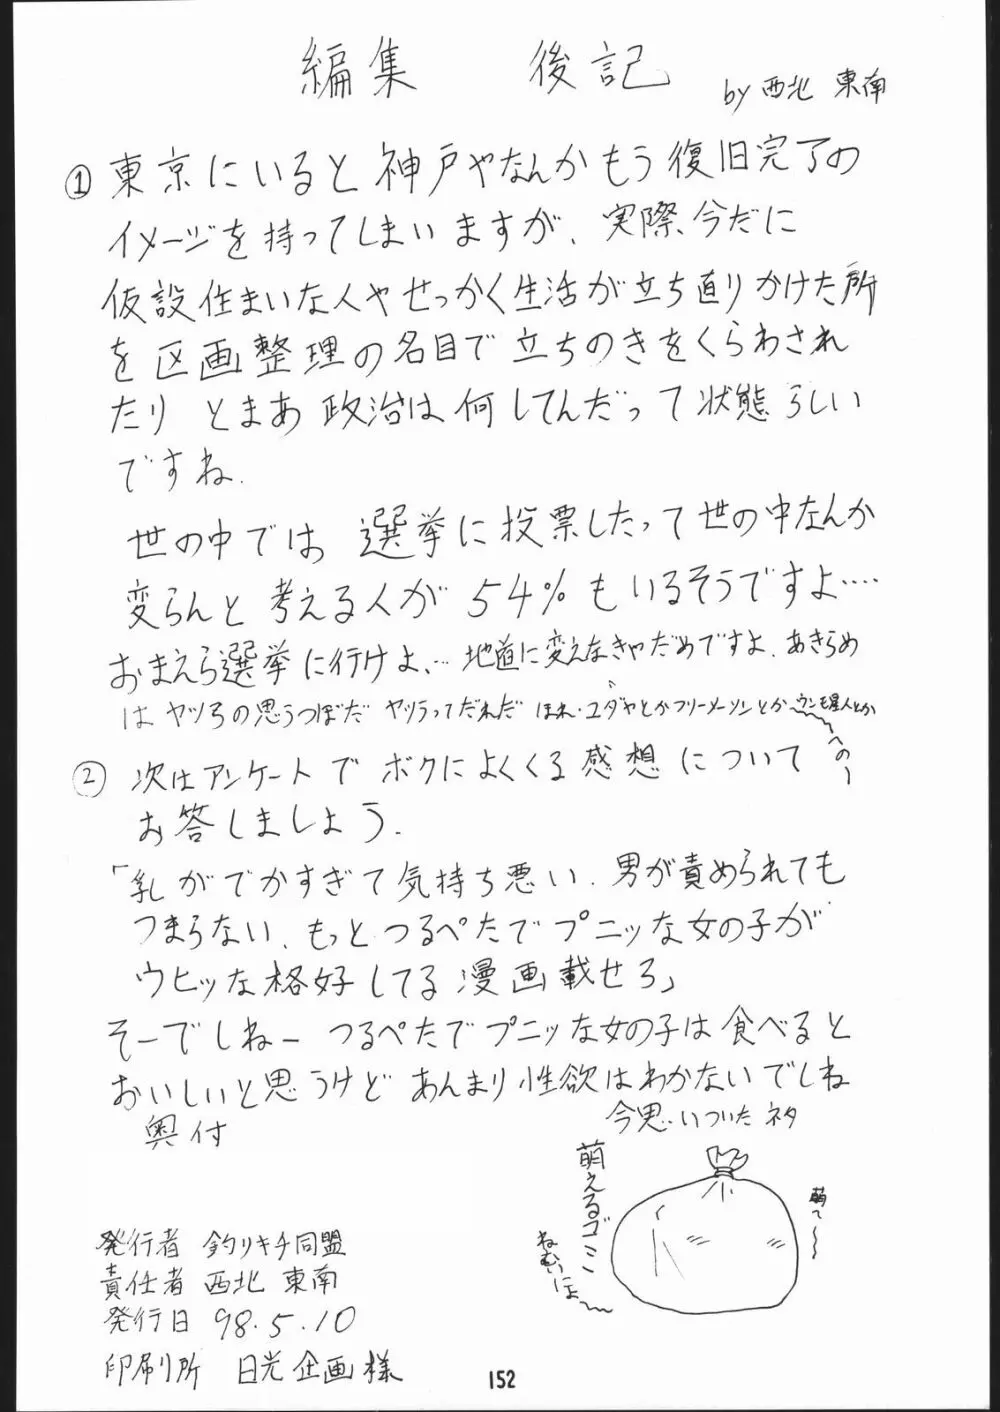 編集 後記
by 西北 東南
① 東京にいると神戸やなんかもう復旧完了の
イメージを持ってしまいますが、実際今だに
仮設住まいな人やせっかく生活が立ち直りかけた所
を区画整理の名目で立ちのきをくらわされ
たり とまあ 政治は何してんだって状態らしい
ですね.
世の中では 選挙に投票したって世の中なんか
変らんと考える人が54%もいるそうですよ‥‥
おまえら選挙に行けよ、… 地道に変えなきゃだめですよ. あきらめ
はヤツらの思うつぼだ ヤツラってだれだ ほれ・ユダヤとかフリーメーソンとかウンモ星人とか
へのー
② 次はアンケートでボクによくくる感想について
お答えしましょう.
「乳がでかすぎて気持ち悪い. 男が責められても
つまらない. もっとつるぺたでプニッな女の子が
ウヒッな格好してる漫画載せろ」
そーでしねー つるぺたでプニッな女の子は食べると
おいしいと思うけど あんまり性欲はわかないでしね
今思いついたネタ
萌えるゴミ
萌て〜〜
ねむいによ〜
奥付
発行者 釣りキチ同盟
責任者 西北 東南
発行日 98.5.10
印刷所 日光企画様
152